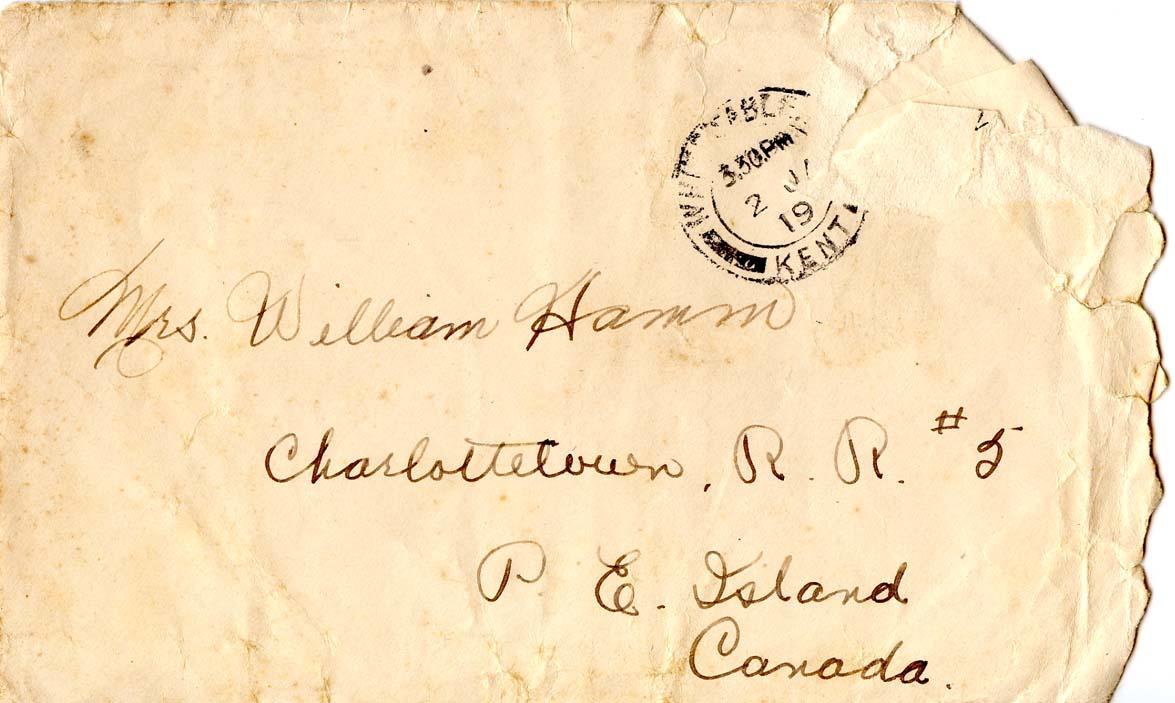 3.30 PM
2
19
KENT
Mrs. William Hamm
Charlottetown, R. R. # 5
P. E. Island
Canada.